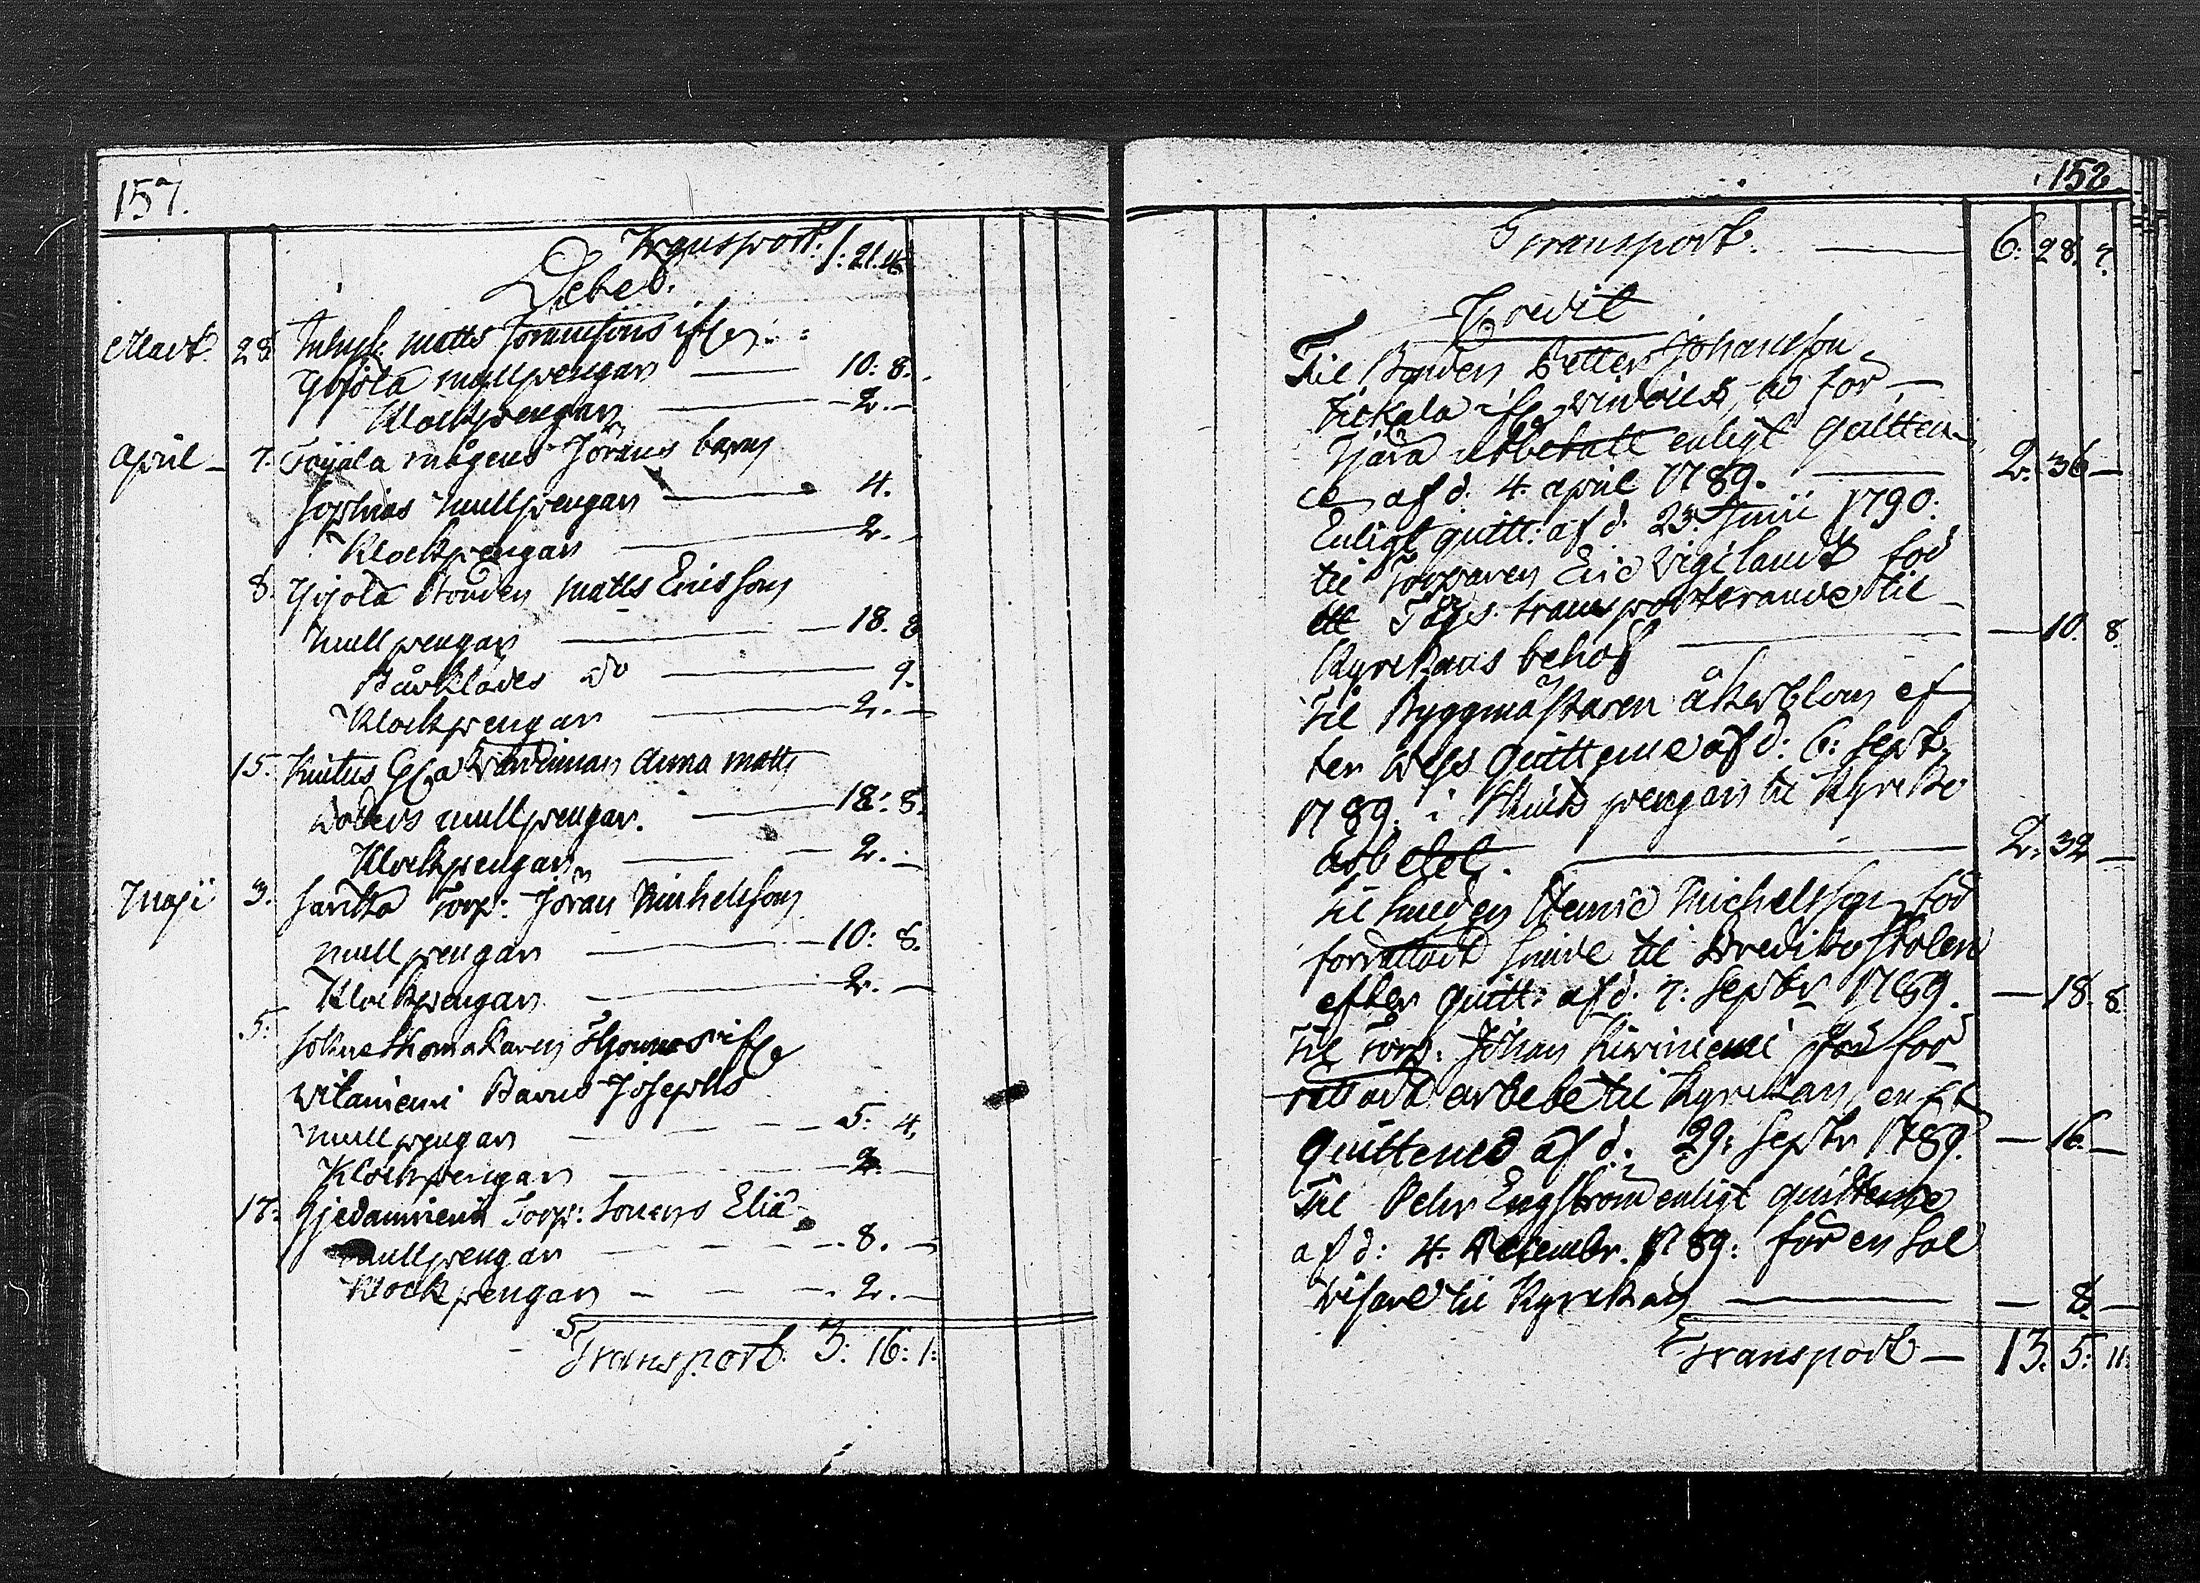 157.
Transport. 1: 21. 4.
Debed.
Mart. 28. Inhys: Matts Joransons
Yrjola mullpengar 10: 8.
Klockpengar 2. —
April — 7. Jörans barns
Sophias mullpengar 4.
Klockpengar 2. —
8. Yrjola Bonden Matts Erissons
mullpengar 18. 8
Bårklädes do 9.
Klockpengar 2. —
15. Anna Matts
doters mullpengar. 18: 8.
Klockpengar 2. —
Maji 3. Torp: Jöran Michelssons
mullpengar 10: 8.
Klockpengar 2. —
5.
Witaniemi Barns Josephs
mullpengar 5. 4.
Klockpengar 2. —
17. Torp: Sonens Eliæ
mullpengar 8. —
Klockpengar 2. —
Transport. 3: 16: 1:
152
Transport. 6: 28. 7.
Credit
Til Bonden Petter Johansson
enligt Quitten-
ce af d: 4. april 1789. 2. 36 —
Enligt quitt: af d. 23. Junii 1790.
til Torparen Eric Vigilandt för
transporterande til
Kyrkans behof — 10. 8
Til Byggmästaren Åkerblom ef-
ter dess quittence af d: 6: Sept.
1789. i pengar til Kyrko
Arbetet. 2. 32 —
Til Smeden Henric Michelsson för
förrättadt smide til Prediko stolen
efter quitt: af d. 7: Septbr 1789. — 18. 8
Til Torp. Johan Kiviniemi för för-
rättadt arbete til Kyrkan, enl:
Quittence af d: 29: Septr 1789. — 16. —
Til Pehr Engström enligt quittence
af d: 4. Decembr. 1789: för en Sol
visare til Kyrkan — 8. —
Transport — 13. 5: 11.